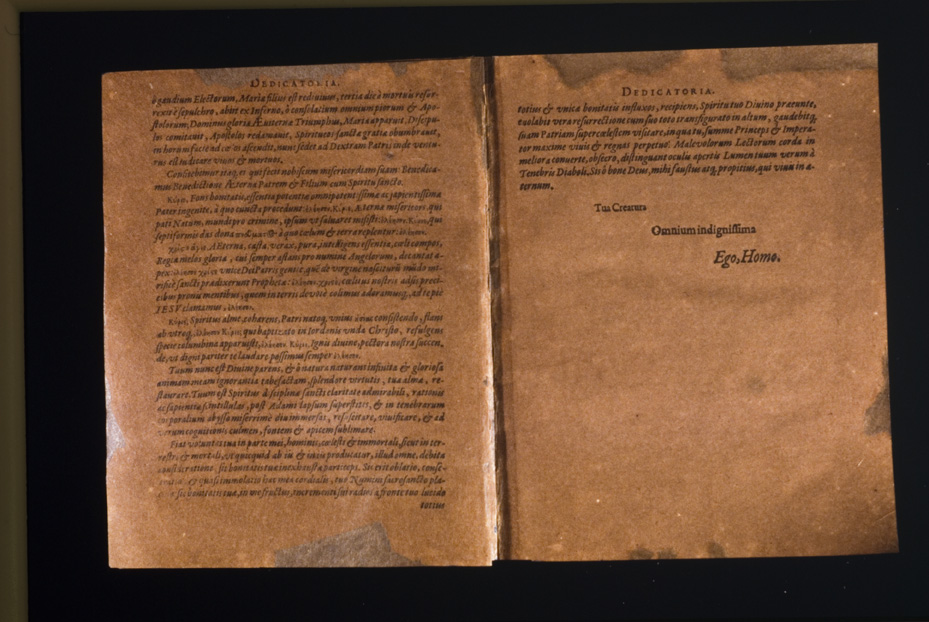 DEDICATORIA.
ô gaudium Electorum, Mariæ filius est redivivus, tertia die à mortuis resur-
rexit è sepulchro, abiit ex Inferno, ô consolatium omnium piorum & Apo-
stolorum; Dominus gloriæ Æuiternæ Triumphus, Mariæ apparet, Discipu-
los comitauit, Apostolos redamauit, Spiritus sancti gratia obumbrauit,
in horum faciend. cœ os ascendit, nunc sedet ad Dextram Patris inde ventu-
rus est iudicare viuos & mortuos.
Confitebimur itaq; ei qui fecit nobiscum misericordiam suam: Benedica-
mus Benedictione Æterna Patrem & Filium cum Spiritu sancto.
Fons bonitatis, essentia potentia omnipotentissima ac sapientissima
Pater ingenite, à quo cuncta procedunt Æterna misericors, qui
pati Natum, mundi pro crimine, ipsum vt saluaret misisti qui
septiformis das dona à quo cœlum & terra replentur
Æterna, casta, verax, pura, intelligens essentia, cœli compos,
Regiæ melos gloriæ, cui semper astans pro numine Angelorum, decantat a-
pex: vnice Dei Patris genite, quē de virgine nasciturū mūdo mi-
rificè sancti prædixerunt Prophetæ: cœlitus nostris adsis preci-
bus pronis mentibus, quem in terris deuotè colimus adoramusq; ad te pie
IESV clamamus
Spiritus alme, cohærens, Patri natoq; vnius consistendo, flans
ab vtroq; qui baptizato in Iordanis vnda Christo, refulgens
specie columbina apparuisti, Ignis diuine, pectora nostra succen-
de, vt digni pariter te laudare possimus semper
Tuum nunc est Diuine parens, & à natura naturanti infinita & gloriosa
animam meam ignorantia tabefactam, splendore virtutis, tua alma, re-
staurare. Tuum est Spiritus disciplinæ sancti claritate admirabili, rationis
ac sapientiæ scintillulas, post Adami lapsum superstites, & in tenebrarum
corporalium abysso miserrimè diu immersas, resuscitare, viuificare, & ad
verum cognitionis culmen, fontem & apicem sublimare.
Fiat voluntas tua in parte mei, hominis, cœlesti & immortali, sicut in ter-
restri, & mortali, vt quicquid ab iis & in iis producatur, illud omne, debita
bonitatis tuæ inexhaustæ particeps. Sit ista oblatio, conse-
& quasi immolatio hæc mea cordialis, tuo Numini sacrosancto pla-
sic bonitatis tuæ, in wos fructus, incrementi sui radius à fronte tuo lucido
totius
DEDICATORIA.
totius & vnicæ bonitatis influxus, recipiens, Spiritu tuo Diuino præeunte,
euolabit vera resurrectione cum suo toto transfigurato in altum, gaudebitq;
suam Patriam supercœlestem visitare, in qua tu, summe Princeps & Impera-
tor maxime viuis & regnas perpetuò. Malevolorum Lectorum corda in
meliora conuerte, obsecro, distinguant oculis apertis Lumen tuum verum à
Tenebris Diaboli, Sis ô bone Deus, mihi faustus atq; propitius, qui viuis in æ-
ternum.
Tua Creatura
Omnium indignissima
Ego, Homo.